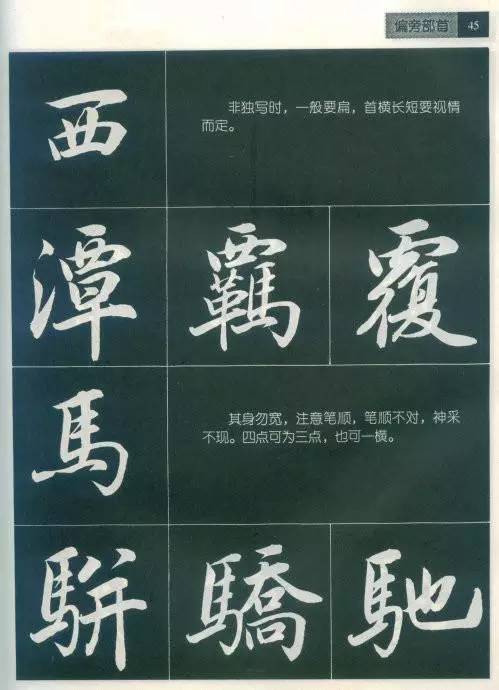 偏旁部首 45
西
非独写时，一般要扁，首横长短要视情
而定。
潭 覊 覆
馬
其身勿宽，注意笔顺，笔顺不对，神采
不现。四点可为三点，也可一横。
騈 驕 馳